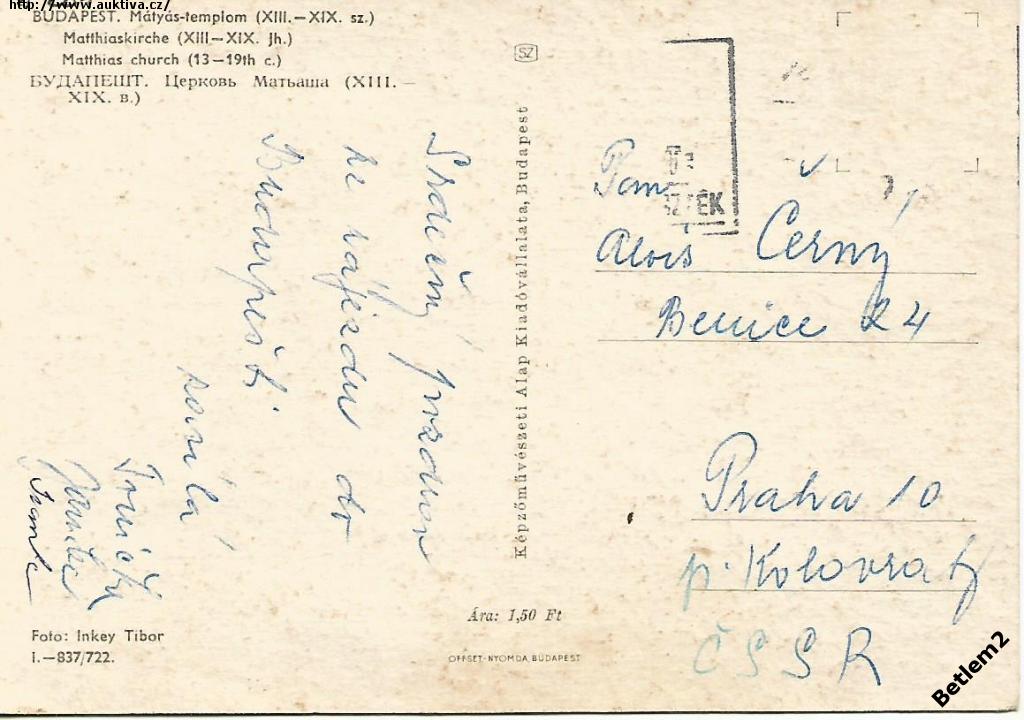 http://www.auktiva.cz/
BUDAPEST. Mátyás-templom (XIII.—XIX. sz.)
Matthiaskirche (XIII—XIX. Jh.)
Matthias church (13—19th c.)
БУДАПЕШТ. Церковь Матьаша (XIII.—
XIX. в.)
SZ
Srdečný pozdrav
ze zájezdu do
Budapešti
zasílá
Képzőművészeti Alap Kiadóvállalata, Budapest
Pan
Alois Černý
Benice 24
Praha 10
p. Kolovraty
ČSSR
Ára: 1,50 Ft
Foto: Inkey Tibor
I.—837/722.
OFFSET-NYOMDA, BUDAPEST
Betlem2